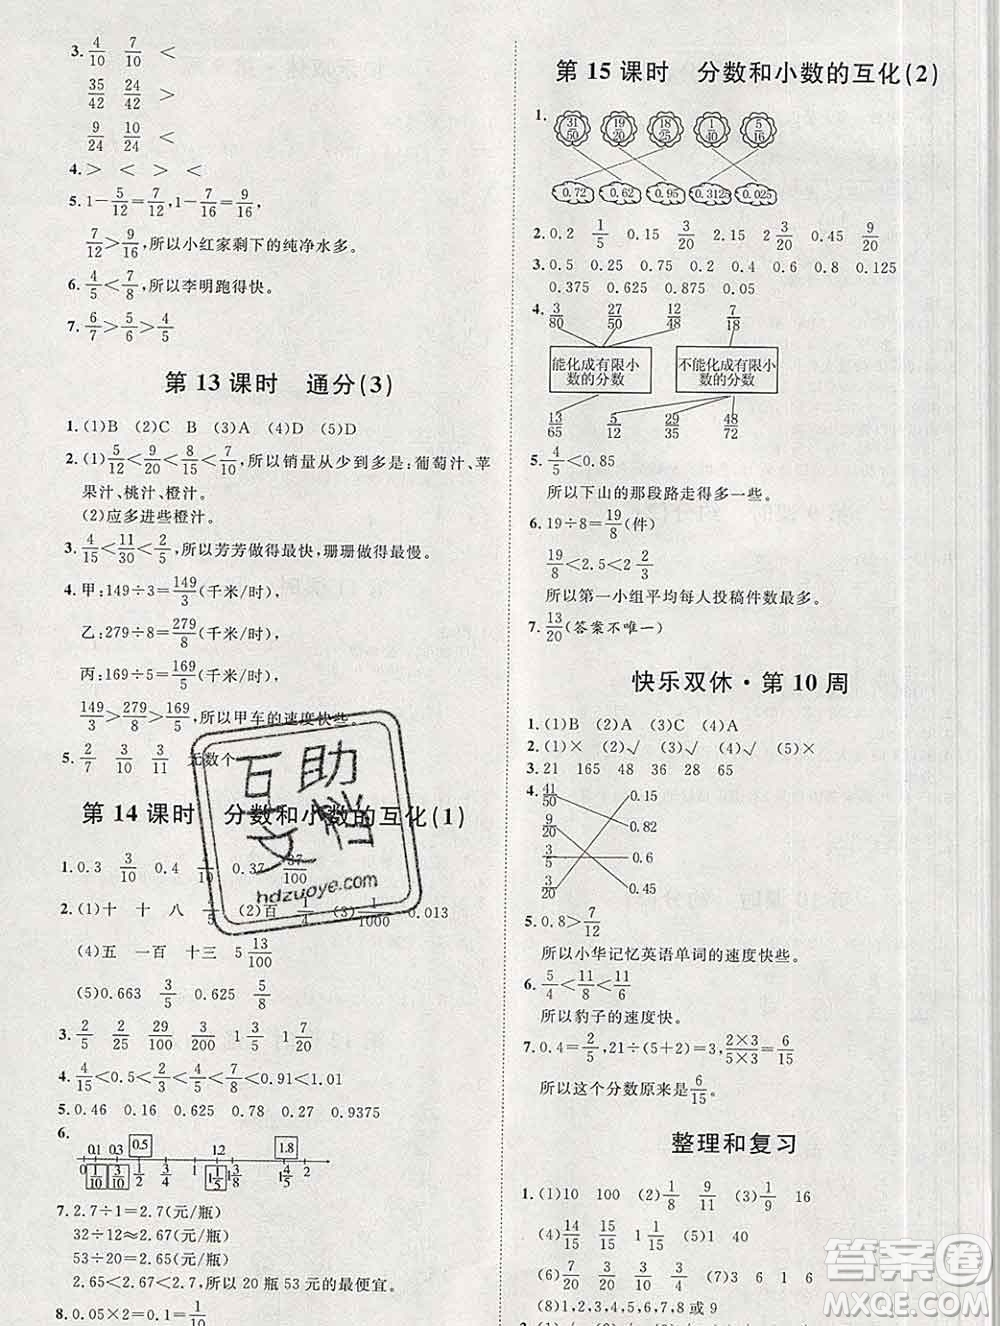 3. 4/10 7/10 <
35/42 24/42 >
9/24 10/24 <
4. > < > <
5. 1-5/12=7/12, 1-7/16=9/16,
7/12>9/16, 所以小红家剩下的纯净水多。
6. 4/5<7/8, 所以李明跑得快。
7. 6/7>5/6>4/5
第 13 课时 通分(3)
1. (1)B (2)C B (3)A (4)D (5)D
2. (1)5/12<9/20<8/15<7/10, 所以销量从少到多是:葡萄汁、苹
果汁、桃汁、橙汁。
(2)应多进些橙汁。
3. 4/15<11/30<2/5, 所以芳芳做得最快,珊珊做得最慢。
4. 甲:149÷3=149/3(千米/时)
乙:279÷8=279/8(千米/时),
丙:169÷5=169/5(千米/时),
149/3>279/8>169/5, 所以甲车的速度快些。
5. 2/7 3/7 4/7 无数个
第 14 课时 分数和小数的互化(1)
1. 0.3 3/10 0.4 4/10 0.37 37/100
2. (1)十 十 八 4/5 (2)百 1/4 (3)13/1000 0.013
(4)五 一百 十三 5 13/100
(5)0.663 3/5 0.625 5/8
3. 2/5 2/25 29/100 4/5 1 2/5 1 3/5
4. 4/15<0.5<2/3<4/5<7/8<0.91<1 1/10
5. 0.46 0.16 0.625 0.78 0.27 0.9375
6. 0.1 0.3 0.5 1 1.2 1.8
0 1/10 3/10 1/2 3/4 1 1/5 1 1/4 1 3/4 2
7. 2.7÷1=2.7(元/瓶)
32÷12≈2.67(元/瓶)
53÷20=2.65(元/瓶)
2.65<2.67<2.7, 所以 20 瓶 53 元的最便宜。
8. 0.05×2=0.1=1/10
第 15 课时 分数和小数的互化(2)
1. 31/50 19/20 18/25 1/40 5/16
0.72 0.62 0.95 0.3125 0.025
2. 0.2 1/5 0.15 3/20 2.15 2 3/20 0.45 9/20
3. 0.5 0.25 0.75 0.2 0.6 0.8 0.125
0.375 0.625 0.875 0.05
4. 3/80 27/50 12/48 7/18
能化成有限小数的分数 不能化成有限小数的分数
13/65 5/12 14/56 48/72
5. 4/5<0.85
所以下山的那段路走得多一些。
6. 19÷8=19/8(件)
19/8<2.5<2 2/3
所以第一小组平均每人投稿件数最多。
7. 13/20(答案不唯一)
快乐双休·第 10 周
1. (1)B (2)A (3)C (4)A
2. (1)× (2)√ (3)√ (4)√ (5)×
3. 21 165 48 36 28 65
4. 41/50 9/20 3/20 3/5 0.15 0.82 0.6 0.45
5. 0.8>7/12
所以小华记忆英语单词的速度快些。
6. 5/4<10/7<11/6
所以豹子的速度快。
7. 0.4=2/5, 21÷(5+2)=3, 2×3/5×3=6/15
所以这个分数原来是6/15。
整理和复习
1. (1)10 100 (2)1/8 9/11 (3)1/9 16
(4)14/15 15/15 1/15 (5)40 1
(6)7/20 (7)3 6 1 6
(8)1,2,3,6,18 或 9
互助文档
hdzuoye.com
答案圈
MXQE.COM